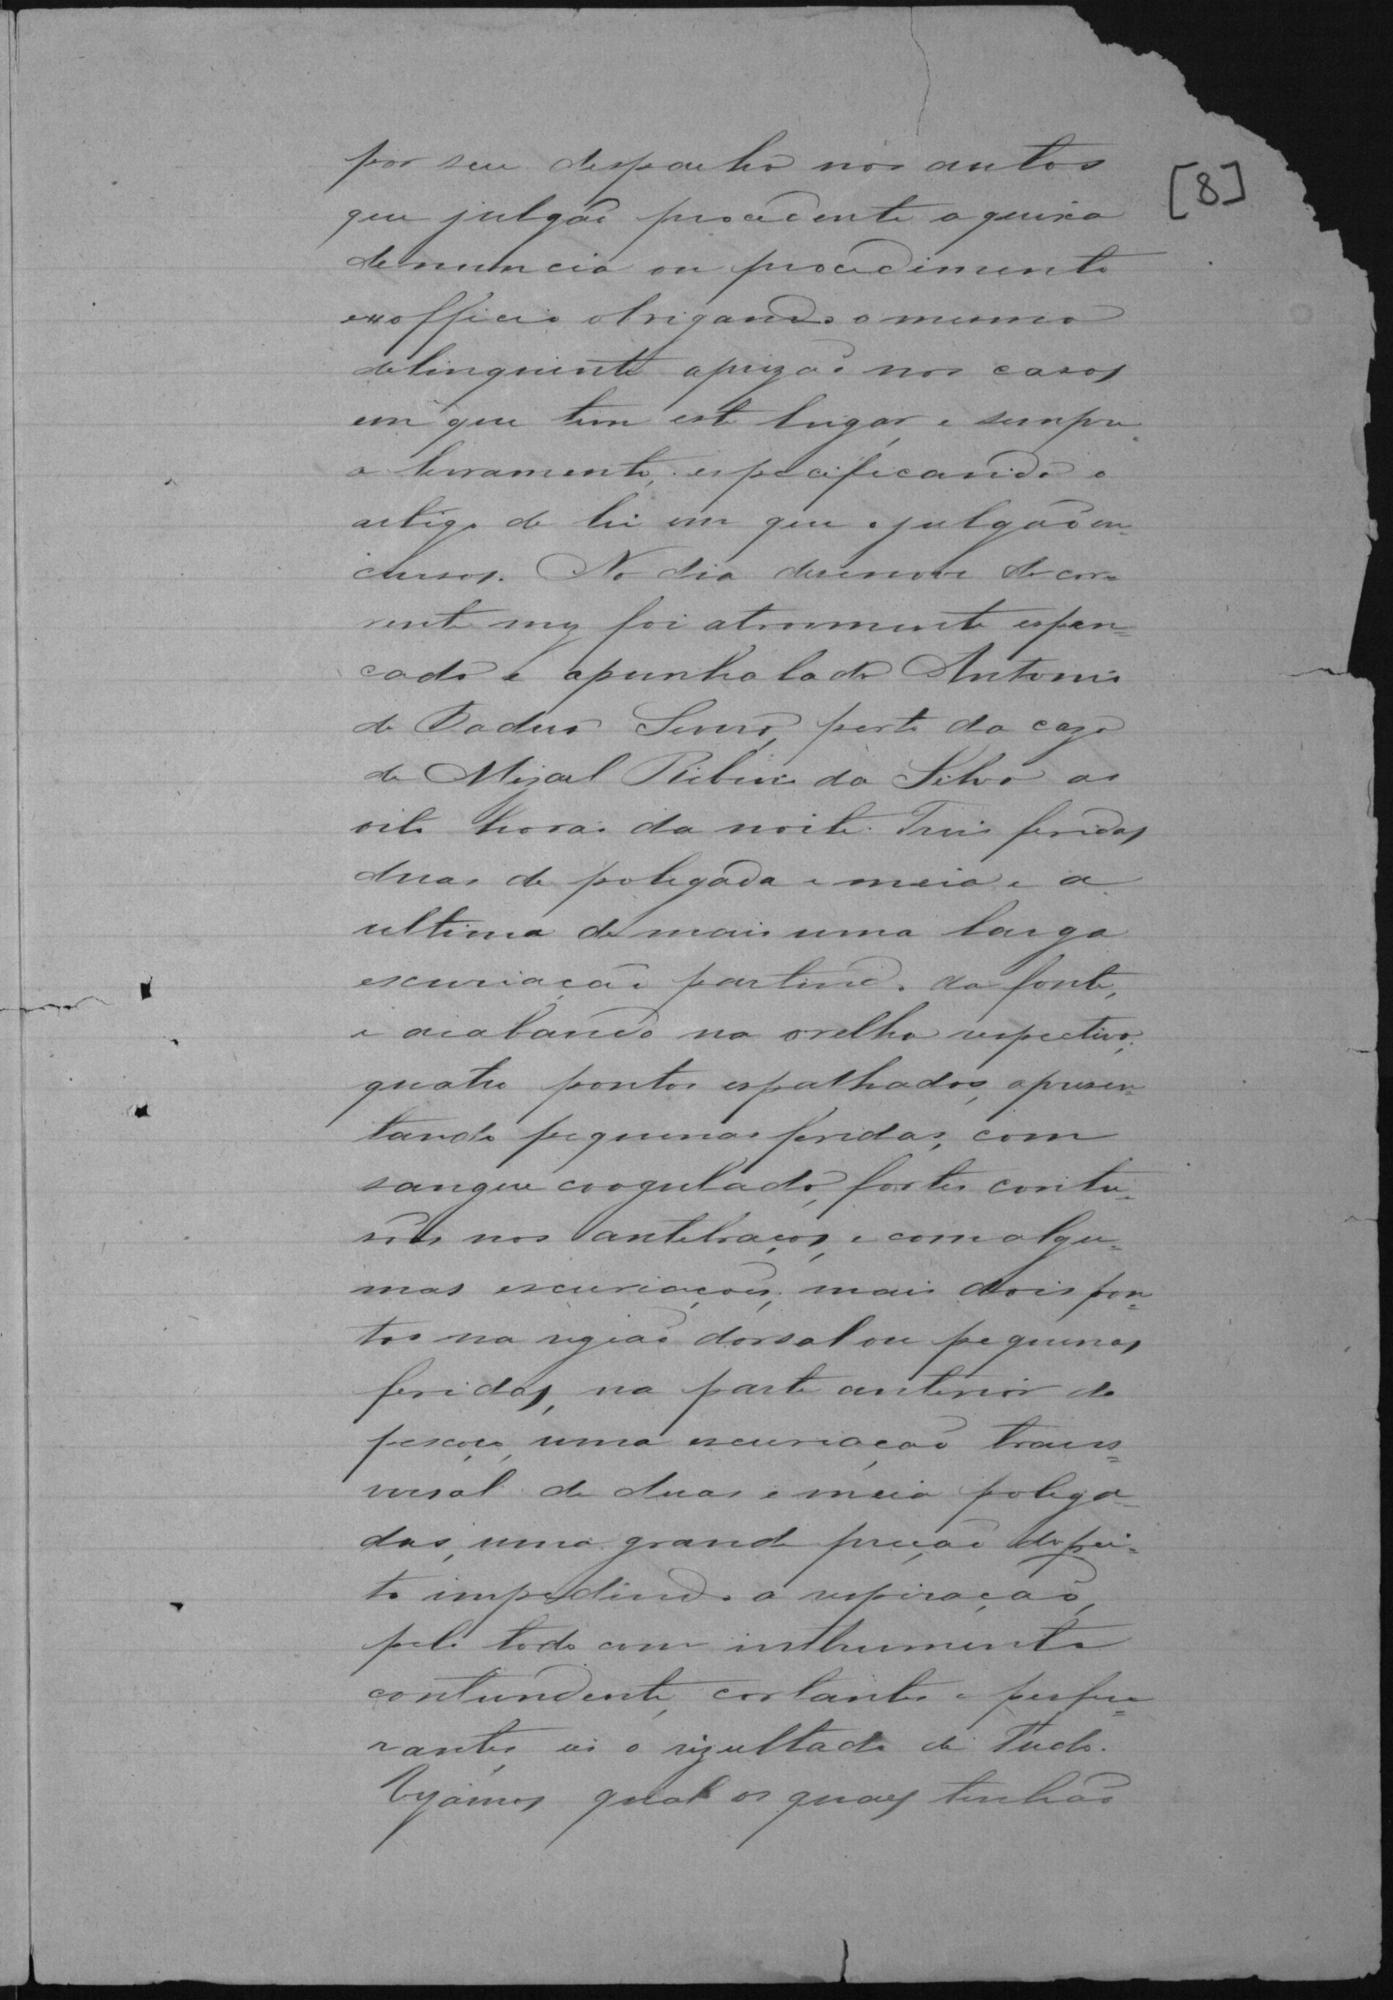 por seu despacho nos autos
[8]
que julgão procedente a queixa
denuncia ou procedimento
exofficio obrigando o mesmo
delinquente aprizão nos casos
em que tem este lugar, e sempre
a livramento, especificando o
artigo de lei em que o julgão in-
cursos. No dia desenove do cor-
rente mez foi atrosmente espan-
cado e apunhalado Antonio
de Badus Senna, perto da caza
de Mizael Ribeiro da Silva as
oito horas da noite. Treis feridas
duas de polegada e meia e a
ultima de mais uma larga
escuriação partindo da fonte,
e acabando na orelha respectiva,
quatro pontos espalhados, apresen-
tando pequenas feridas, com
sangue coogulado, fortes contu-
sões nos antebraços, e com algu-
mas escuriações, mais dois pon-
tos na região dorsal ou pequenas
feridas, na parte anterior do
pescoço, uma escuriação trans-
versal de duas e meia polega-
das, uma grande preção do pei-
to impedindo a respiração,
pelo todo com instrumento
contundente, cortantes e perfu-
rantes, eis o rezultado de tudo.
Vejamos qual os quaes tenhão